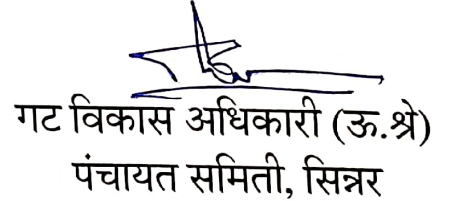 गट विकास अधिकारी (ऊ.श्रे)
पंचायत समिती, सिन्नर